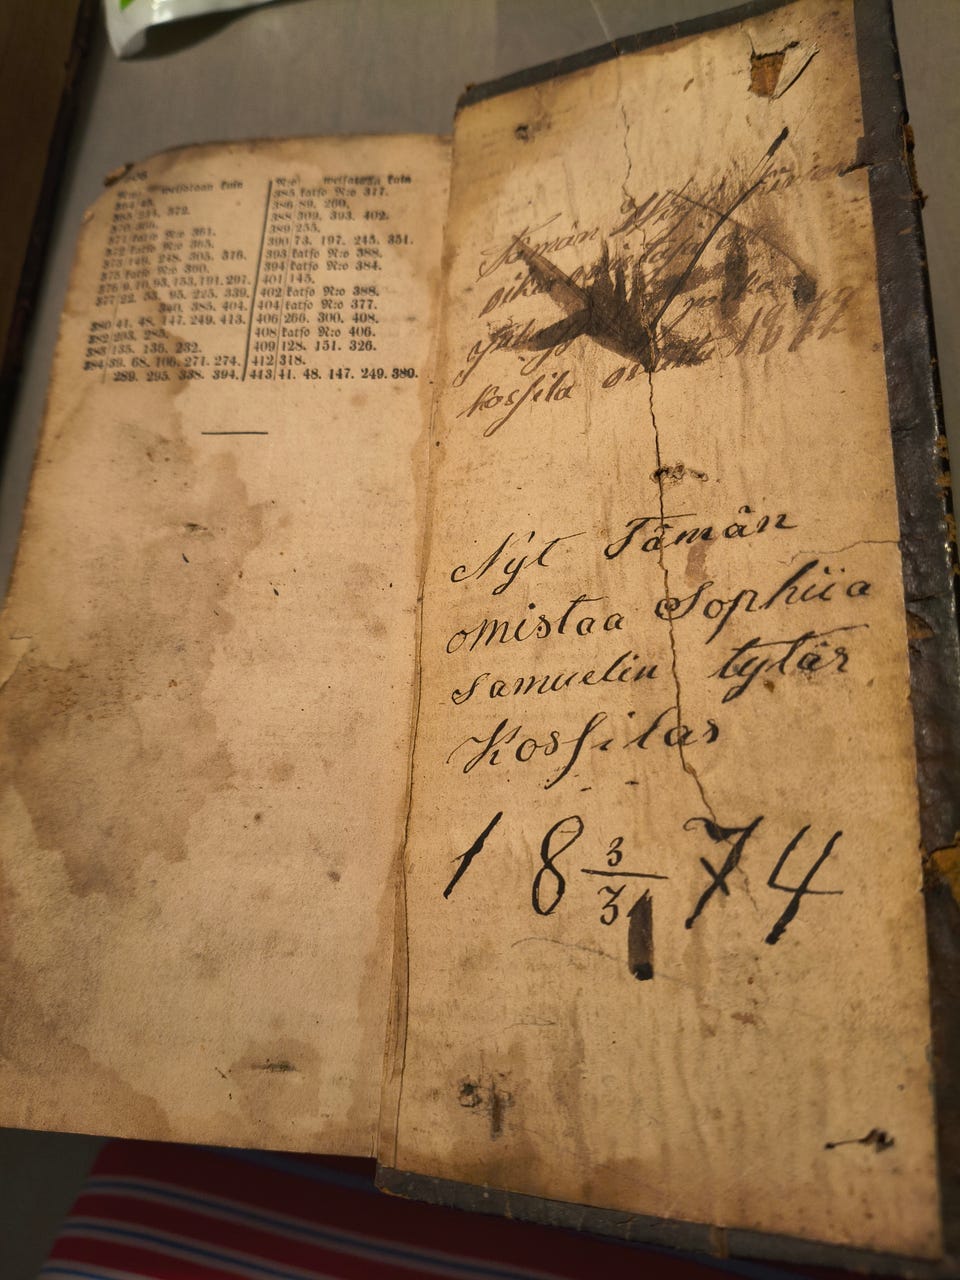 N:o weisataan kuin
364 45.
365 234. 372.
370 396.
371 katso N:o 361.
372 katso N:o 365.
373 149. 248. 305. 376.
375 katso N:o 360.
376 9. 10. 93. 153. 191. 297.
377 22. 53. 95. 225. 339.
340. 385. 404.
380 41. 48. 147. 249. 413.
382 203. 285.
383 135. 136. 232.
384 39. 68. 106. 271. 274.
289. 295. 338. 394.
N:o weisataan kuin
385 katso N:o 377.
386 89. 260.
388 309. 393. 402.
389 255.
390 73. 197. 245. 351.
393 katso N:o 388.
394 katso N:o 384.
401 145.
402 katso N:o 388.
404 katso N:o 377.
406 266. 300. 408.
408 katso N:o 406.
409 128. 151. 326.
412 318.
413 41. 48. 147. 249. 380.
Tämän
oikia omistaja on
Kosfila
Nyt Tämän
omistaa Sophiia
Samuelin tytär
Kosfilas
18 3/31 74